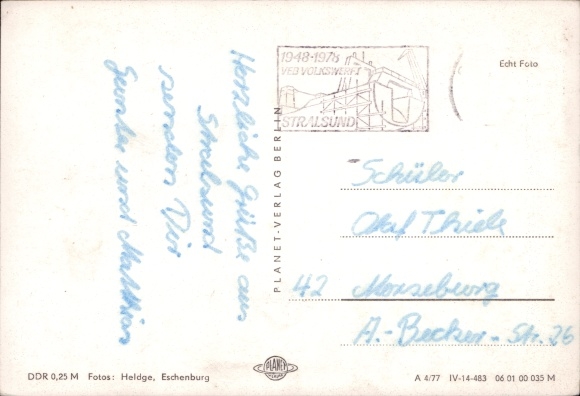 Herzliche Grüße aus
Stralsund
senden Dir
Gunter und Matthias
1948-1978
VEB VOLKSWERFT
STRALSUND
Echt Foto
PLANET-VERLAG BERLIN
Schüler
Olaf Thiele
42 Merseburg
A.-Becker-Str. 26
DDR 0,25 M Fotos: Heldge, Eschenburg
PLANET
A 4/77 IV-14-483 06 01 00 035 M